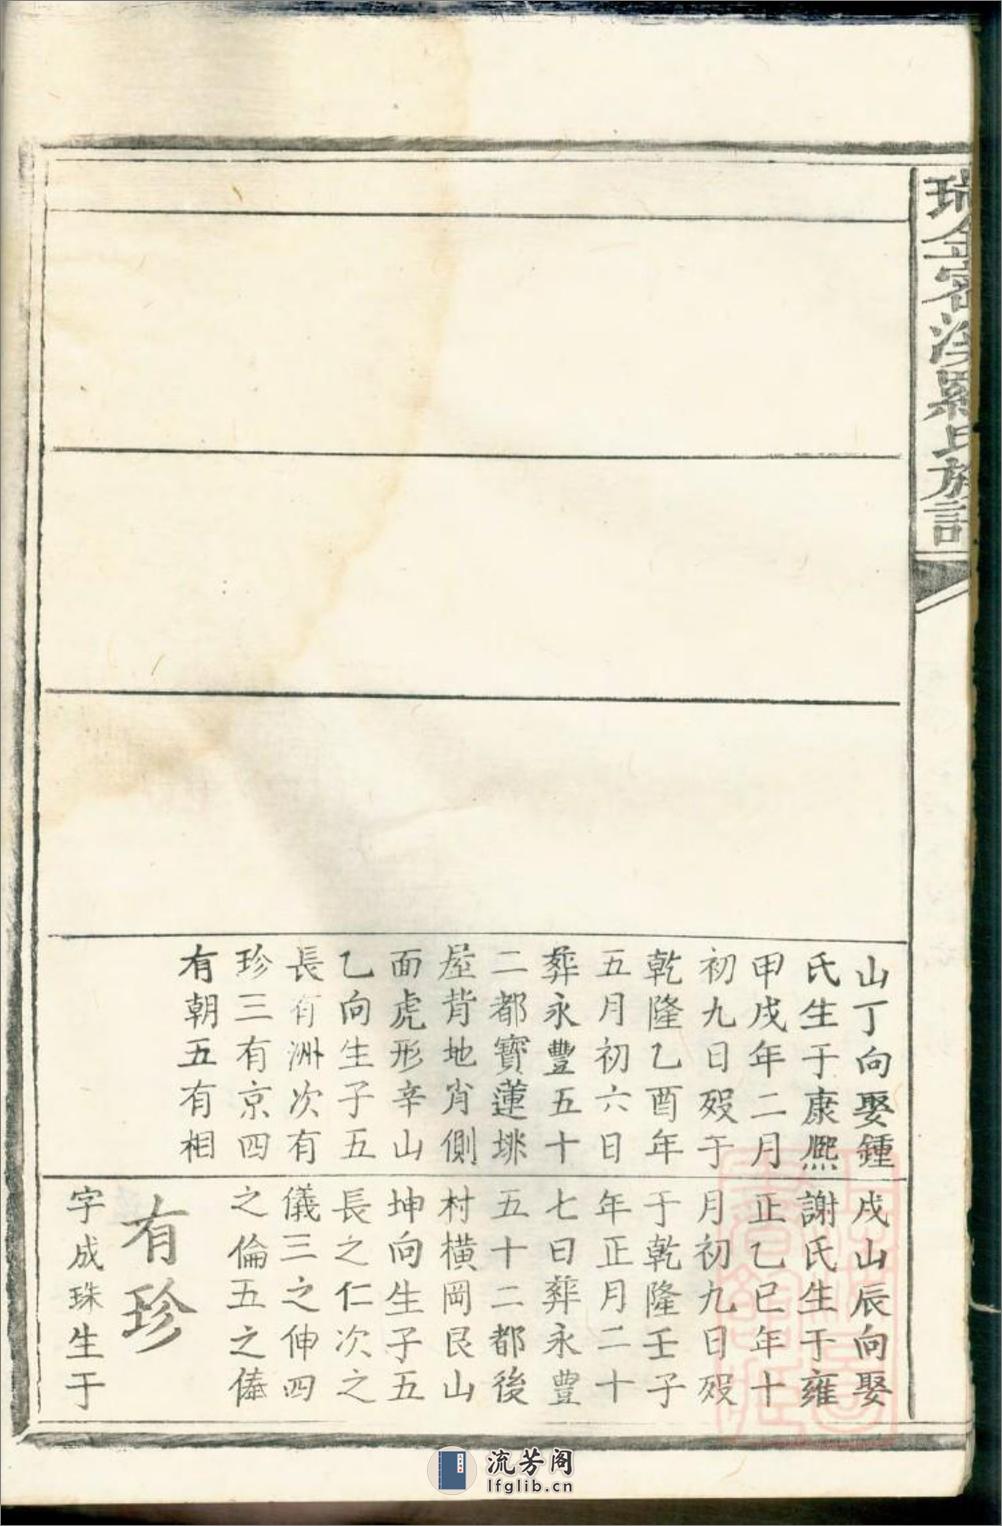 瑞金密溪羅氏族譜
山丁向娶鍾
氏生于康熈
甲戌年二月
初九日殁于
乾隆乙酉年
五月初六日
葬永豐五十
二都寶蓮垗
屋背地肖側
面虎形辛山
乙向生子五
長有洲次有
珍三有京四
有朝五有相
戌山辰向娶
謝氏生于雍
正乙巳年十
月初九日殁
于乾隆壬子
年正月二十
七日葬永豐
五十二都後
村橫岡艮山
坤向生子五
長之仁次之
儀三之伸四
之倫五之俸
有珍
字成珠生于
流芳阁
lfglib.cn